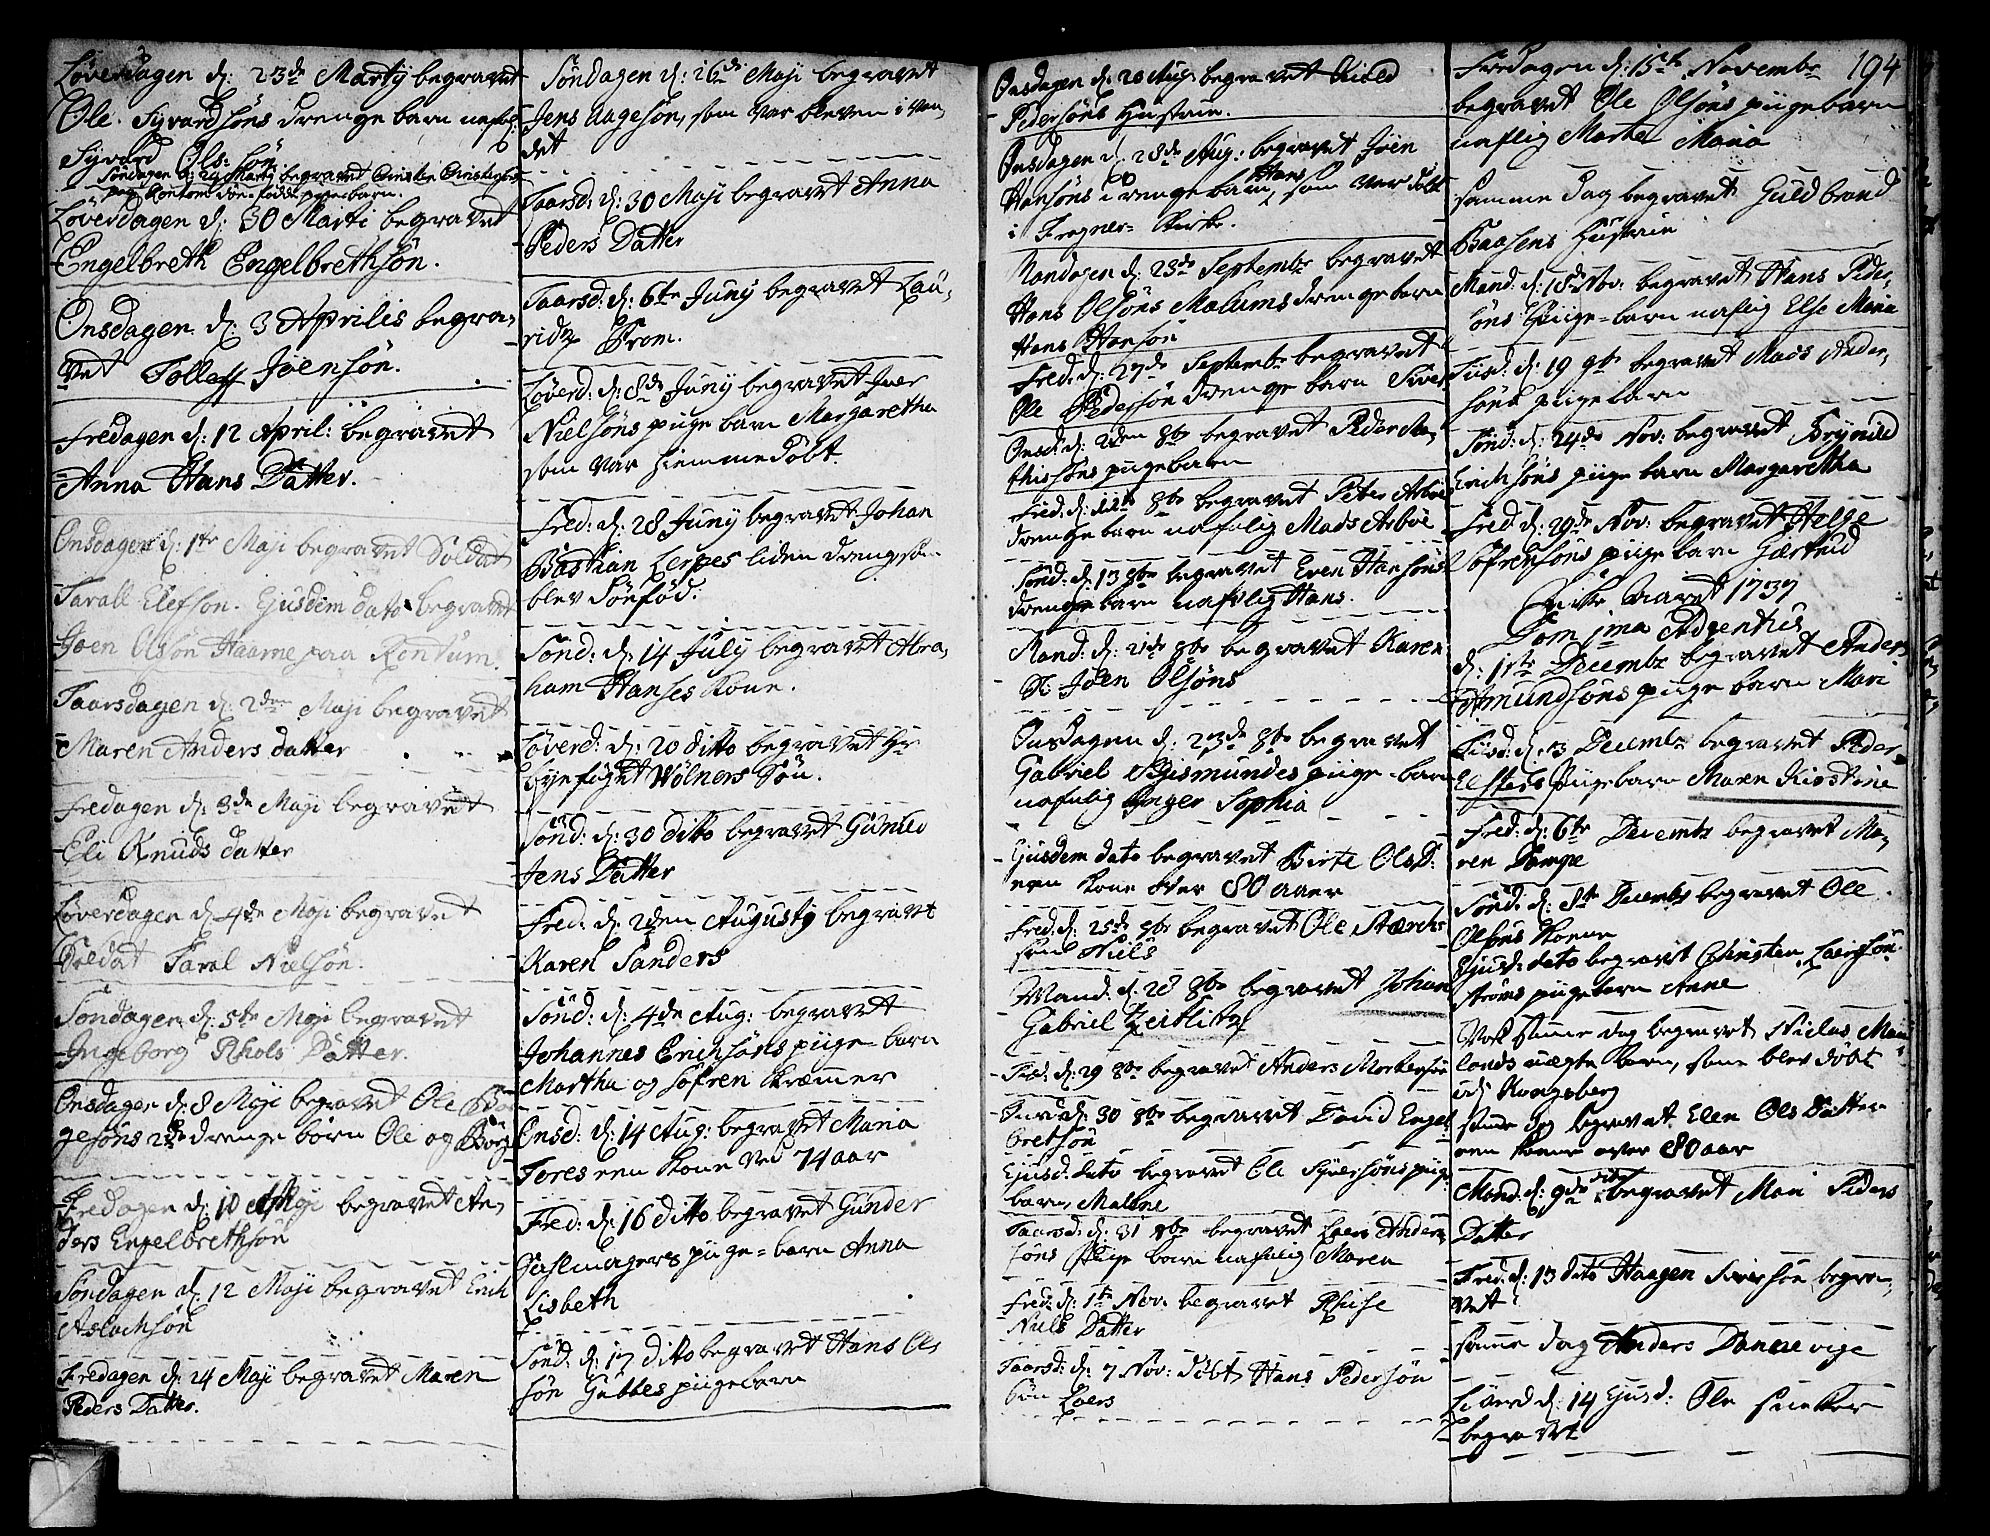 Løverdagen d: 23de Martij begravet
Ole Syvardsöns drenge barn nafl:
Syvard Ols: Sön
Söndagen d: 24 Martij begravet Christen Christophers
pige barn
Løverdagen d: 30 Marti begravet
Engelbreth Engelbrethsön.
Onsdagen d: 3 Aprilis begra,
vet Tolleff Joensön.
Fredagen d: 12 April: begravet
Anna Hans Datter.
Onsdagen d: 1te Maji begravet Soldat
Tarall Elefsön. Ejusdem dato begravet
Joen Olsön Haarne paa Rentum.
Taarsdagen d: 2den Maji begravet
Maren Anders datter
Fredagen d: 3de Maji begravet
Eli Knuds datter
Løverdagen d: 4de Maji begravet
Soldat Taral Nielsön.
Söndagen d: 5te Maji begravet
Ingeborg Rhols Datter.
Onsdagen d: 8 Maji begravet Ole
gesöns 2de drenge börn Ole og Borg
Fredagen d: 10 Maji begravet An,
ders Engelbrethsön
Søndagen d: 12 Maji begravet Erich
Aslachsön
Fredagen d: 24 Maji begravet Maren
Peders Datter.
Söndagen d: 26de Maji begravet
Jens Aagesön, som var bleven i van,
det
Taarsd: d: 30 Maji begravet Anna
Peders Datter
Taarsd: d: 6te Junij begravet Lau,
ridz From.
Løverd: d: 8de Junij begravet Iver
Nielsöns pige barn Margaretha
som var hiemmedöbt.
Fred: d: 28 Junij begravet Johan
Bastian Lerpes liden dreng som
blev dönföd.
Sönd: d: 14 July begravet Abra,
ham Hanses Kone.
Løverd: d: 20 ditto begravet Hr
byefoget Wölners Sön.
Sönd: d: 30 ditto begravet Gunild
Jens Datter
Fred: d: 2den Augustij begravet
Karen Sanders
Sönd: d: 4de Aug: begravet
Johannes Erichsöns pige barn
Martha og Sofren Kræmmer
Onsd: d: 14 Aug: begravet Maria
Feres een Kone ved 74 aar
Fred: d: 16 ditto begravet Gunder
Sahlmagers pige-barn Anna
Lisbeth
Sönd: d: 17 dito begravet Hans Ol,
sön Gubbes pigebarn
Onsdagen d: 20 Aug: begravet
Pedersöns Hustrue.
Onsdagen d: 28de Aug: begravet Joen
Hansöns drengebarn Hans, som var döbt
i Fregner- Kirke.
Mandagen d: 23de Septembr begravet
Hans Olsöns Malums drengebarn
Hans Hansön
Fred: d: 27de Septembr begravet
Ole Pedersön drenge barn Siver
Onsd: d: 2den 8br begravet Peder Ma,
thissöns pigebarn
Fred: d: 11te 8br begravet Peter Arboe
drenge barn nafnlig Mads Arboe
Sönd: d: 13 8br begravet Even Hansöns
drenge barn nafnlig Hans.
Mand: d: 21de 8br begravet Karen
Sl Joen Olsöns
Onsdagen d: 23de 8br begravet
Gabriel Sigismundes pige-barn
nafnlig Inger Sophia
Ejusdem dato begravet Birte Olsd:
een Kone över 80 aar
Fred: d: 25de 8br begravet Ole Stærchs
sön Niels
Mand: d: 28 8br begravet Johan
Gabriel Zeitlitz
Tisd: d: 29 8br begravet Anders Mortensön
Onsd: d: 30 8br begravet David Engel
bretsön
Ejusd: dato begravet Ole Syversöns pige
barn, Malene
Taarsd: d: 31 8br begravet Laers Anders,
söns Pige barn nafnlig Maren
Fred: d: 1te Nov: begravet Rhise
Niels Datter
Taarsd: d: 7 Nov: döbt Hans Pedersön
Sön Laers
Fredagen d: 15te Novembr 194
begravet Ole Olsöns pigebarn
naflig Marthe Maria
samme dag begravet Guldbrand
Baasens Hustrue
Mand: d: 18de Nov: begravet Hans Peder,
söns Pige-barn naflig Else Maria
Tiisd: d: 19 9br begravet Mads Ander,
söns pigebarn
Sönd: d: 24de Nov: begravet Brynild
Erichsöns pige barn Margaretha
Fred: d: 29de Nov: begravet Helge
Sofrensöns pige barn Giertrud
Kirke Aaret 1737
Dom 1ma Adventus
d: 1ste Decembr begravet Anders
Amundsöns pige barn Mari
Tiisd: d: 3 Decembr begravet Peder
Elsters Pigebarn Maren Kirstine
Fred: d: 6te Decembr begravet Ma,
ren Dampe
Sönd: d: 8te Decembr begravet Ole
Olsöns Kone
Ejusd: dato begravet Christen Lairsön
ströms pigebarn Anne
Nok samme dag begravet Niclas Mai
lands uægte barn, som blev döbt
udj Kongsberg
samme dag begravet Elen Ols Datter
een Kone over 80 aar
Mand: d: 9de dito begravet Mari Peders
Datter
Fred: d: 13 dito Haagen Siversön begra,
vet
samme dag Anders Dannevige
Löverd d: 14 Ejusd: Ole Snekker
begravet